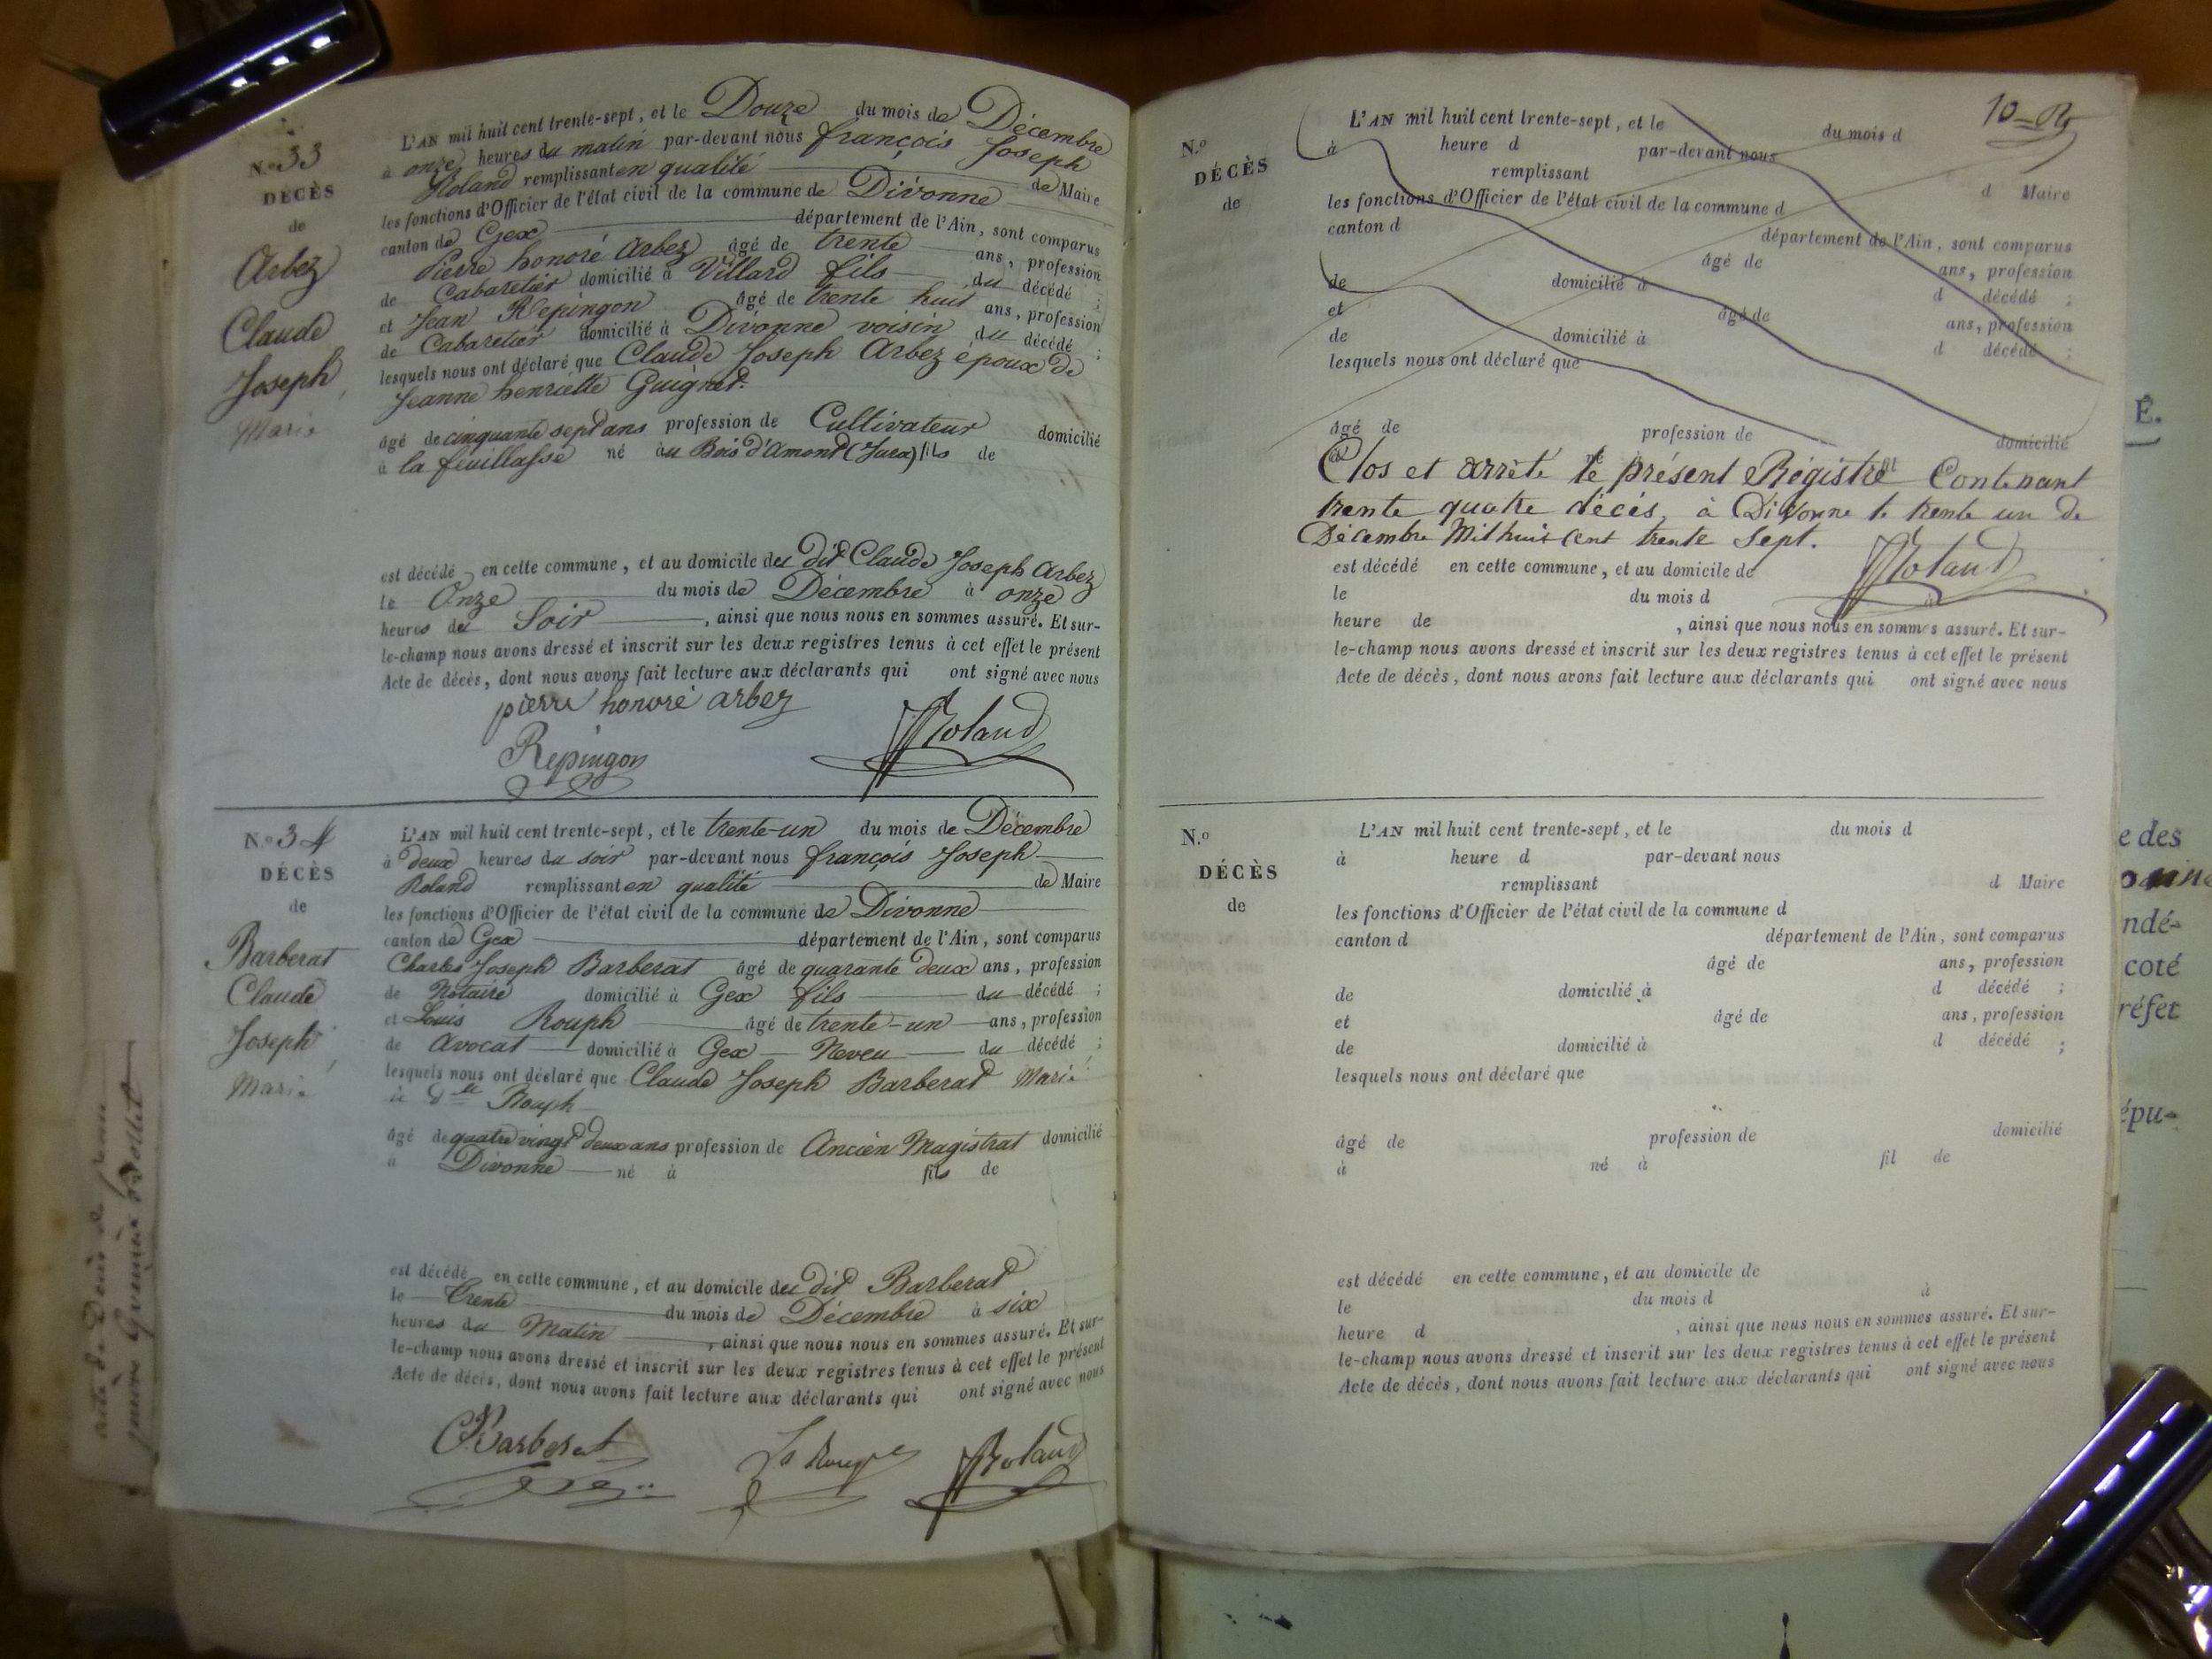 N.o 33
DÉCÈS
de
Arbez
Claude
Joseph
Marié
L'AN mil huit cent trente-sept, et le Douze du mois de Décembre
à onze heures du matin par-devant nous françois Joseph
Roland remplissant en qualité de Maire
les fonctions d'Officier de l'état civil de la commune de Divonne
canton de Gex département de l'Ain, sont comparus
Pierre honoré Arbez âgé de trente ans, profession
de Cabaretier domicilié à Villard fils du décédé ;
et Jean Repingon âgé de trente huit ans, profession
de Cabaretier domicilié à Divonne voisin du décédé ;
lesquels nous ont déclaré que Claude Joseph Arbez époux de
Jeanne henriette Guignet.
âgé de cinquante sept ans profession de Cultivateur domicilié
à la feuillasse né au Bois d'amont (Jura) fils de
est décédé en cette commune, et au domicile du dit Claude Joseph Arbez
le Onze du mois de Décembre à onze
heures du Soir , ainsi que nous nous en sommes assuré. Et sur-
le-champ nous avons dressé et inscrit sur les deux registres tenus à cet effet le présent
Acte de décès, dont nous avons fait lecture aux déclarants qui ont signé avec nous
pierre honoré arbez
Repingon Roland
N.o 34
DÉCÈS
de
Barberat
Claude
Joseph
Marié
L'AN mil huit cent trente-sept, et le trente-un du mois de Décembre
à deux heures du soir par-devant nous françois Joseph
Roland remplissant en qualité de Maire
les fonctions d'Officier de l'état civil de la commune de Divonne
canton de Gex département de l'Ain, sont comparus
Charles Joseph Barberat âgé de quarante deux ans, profession
de Notaire domicilié à Gex fils du décédé ;
et Louis Rouph âgé de trente-un ans, profession
de Avocat domicilié à Gex Neveu du décédé ;
lesquels nous ont déclaré que Claude Joseph Barberat Marié
à dlle Rouph
âgé de quatre vingt deux ans profession de Ancien Magistrat domicilié
à Divonne né à fils de
est décédé en cette commune, et au domicile du dit Barberat
le Trente du mois de Décembre à six
heures du Matin , ainsi que nous nous en sommes assuré. Et sur-
le-champ nous avons dressé et inscrit sur les deux registres tenus à cet effet le présent
Acte de décès, dont nous avons fait lecture aux déclarants qui ont signé avec nous
Barberat Roland
10
N.o
DÉCÈS
de
L'AN mil huit cent trente-sept, et le du mois d
à heure d par-devant nous
remplissant d Maire
les fonctions d'Officier de l'état civil de la commune d
canton d département de l'Ain, sont comparus
âgé de ans, profession
de domicilié à d décédé ;
et âgé de ans, profession
de domicilié à d décédé ;
lesquels nous ont déclaré que
âgé de profession de domicilié
Clos et arrêté le présent Régistre Contenant
trente quatre décès, à Divonne le trente un de
Décembre Mil huit Cent trente Sept.
Roland
est décédé en cette commune, et au domicile de
le du mois d à
heure de , ainsi que nous nous en sommes assuré. Et sur-
le-champ nous avons dressé et inscrit sur les deux registres tenus à cet effet le présent
Acte de décès, dont nous avons fait lecture aux déclarants qui ont signé avec nous
N.o
DÉCÈS
de
L'AN mil huit cent trente-sept, et le du mois d
à heure d par-devant nous
remplissant d Maire
les fonctions d'Officier de l'état civil de la commune d
canton d département de l'Ain, sont comparus
âgé de ans, profession
de domicilié à d décédé ;
et âgé de ans, profession
de domicilié à d décédé ;
lesquels nous ont déclaré que
âgé de profession de domicilié
à né à fil de
est décédé en cette commune, et au domicile de
le du mois d à
heure d , ainsi que nous nous en sommes assuré. Et sur-
le-champ nous avons dressé et inscrit sur les deux registres tenus à cet effet le présent
Acte de décès, dont nous avons fait lecture aux déclarants qui ont signé avec nous
É.
e des
ndé-
coté
réfet
épu-